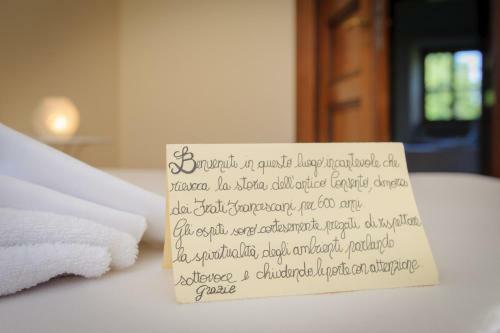 Benvenuti in questo luogo incantevole che
rievoca la storia dell'antico Convento, dimora
dei Frati Francescani per 600 anni.
Gli ospiti sono cortesemente pregati di rispettare
la spiritualità degli ambienti parlando
sottovoce e chiudendo le porte con attenzione.
Grazie